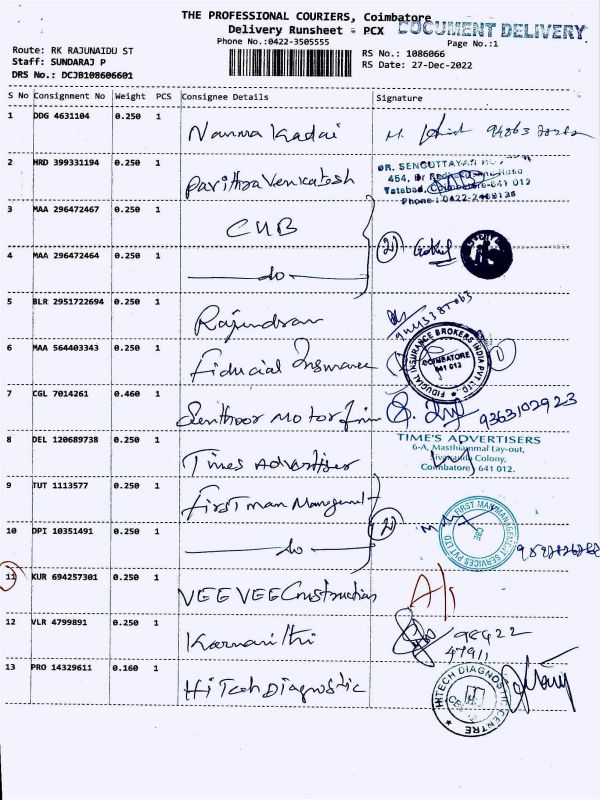 THE PROFESSIONAL COURIERS, Coimbatore
Delivery Runsheet - PCX
DOCUMENT DELIVERY
Phone No.:0422-3505555
Page No.:1
Route: RK RAJUNAIDU ST
RS No.: 1086066
Staff: SUNDARAJ P
RS Date: 27-Dec-2022
DRS No.: DCJB108606601
S No Consignment No Weight PCS Consignee Details Signature
1 DDG 4631104 0.250 1 Namma Kadai
2 MRD 399331194 0.250 1 Pavithra Venkatesh
DR. SENGOTTAYAN
Phone: 0422-
3 MAA 296472467 0.250 1 CUB
4 MAA 296472464 0.250 1 do
2 Gokul
5 BLR 2951722694 0.250 1 Rajendran
6 MAA 564403343 0.250 1 Fiducial Insurance
FIDUCIAL INSURANCE BROKERS INDIA PVT LTD
COIMBATORE
641 012
7 CGL 7014261 0.460 1 Senthoor Motor Finn 9363102923
8 DEL 120689738 0.250 1 Times Advertiser
TIME'S ADVERTISERS
6-A, Masthiammal Lay-out,
Sivananda Colony,
Coimbatore - 641 012.
9 TUT 1113577 0.250 1 First man Management
10 DPI 10351491 0.250 1 do
2
FIRST MAN MANAGEMENT SERVICES PVT LTD
CBE
11 KUR 694257301 0.250 1 VEE VEE Construction
12 VLR 4799891 0.250 1 Karnanithi 98422
47911
13 PRO 14329611 0.160 1 HiTech Diagnostic
HITECH DIAGNOSTIC CENTRE